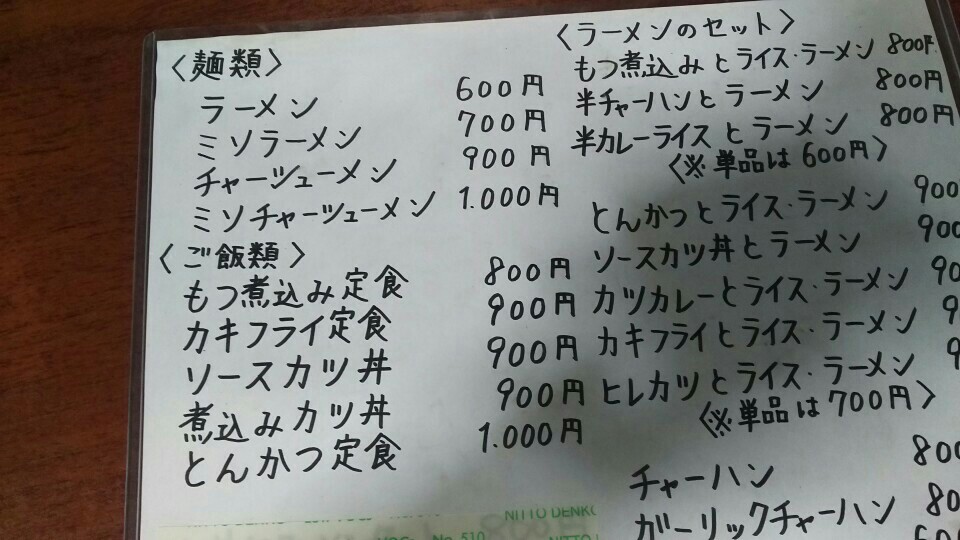 〈麺類〉
ラーメン 600円
ミソラーメン 700円
チャーシューメン 900円
ミソチャーシューメン 1.000円
〈ご飯類〉
もつ煮込み定食 800円
カキフライ定食 900円
ソースカツ丼 900円
煮込みカツ丼 900円
とんかつ定食 1.000円
〈ラーメンのセット〉
もつ煮込みとライス・ラーメン 800円
半チャーハンとラーメン 800円
半カレーライスとラーメン 800円
〈※単品は600円〉
とんかつとライス・ラーメン 900
ソースカツ丼とラーメン 900
カツカレーとライス・ラーメン 90
カキフライとライス・ラーメン 9
ヒレカツとライス・ラーメン 9
〈※単品は700円〉
チャーハン 800
ガーリックチャーハン 80
NITTO DENKO
No. 510